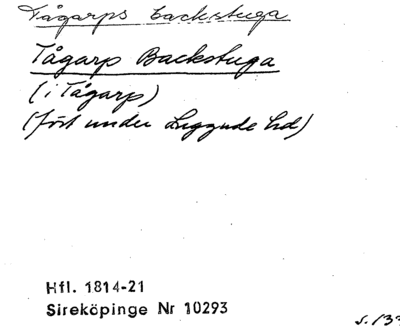 Tågarps backstuga
Tågarp Backstuga
(i Tågarp)
(fört under Luggude hd)
Hfl. 1814-21
Sireköpinge Nr 10293
s. 133